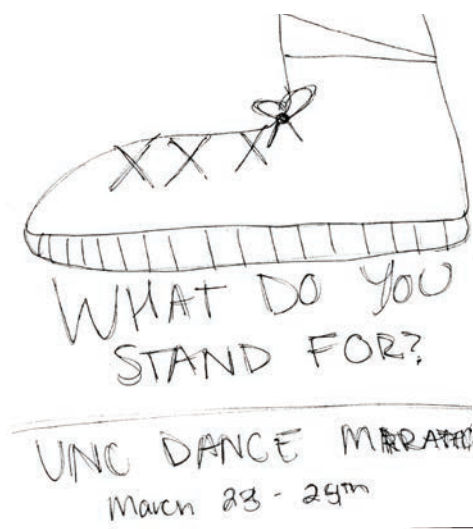 WHAT DO YOU
STAND FOR?
UNC DANCE
March 23 - 24th